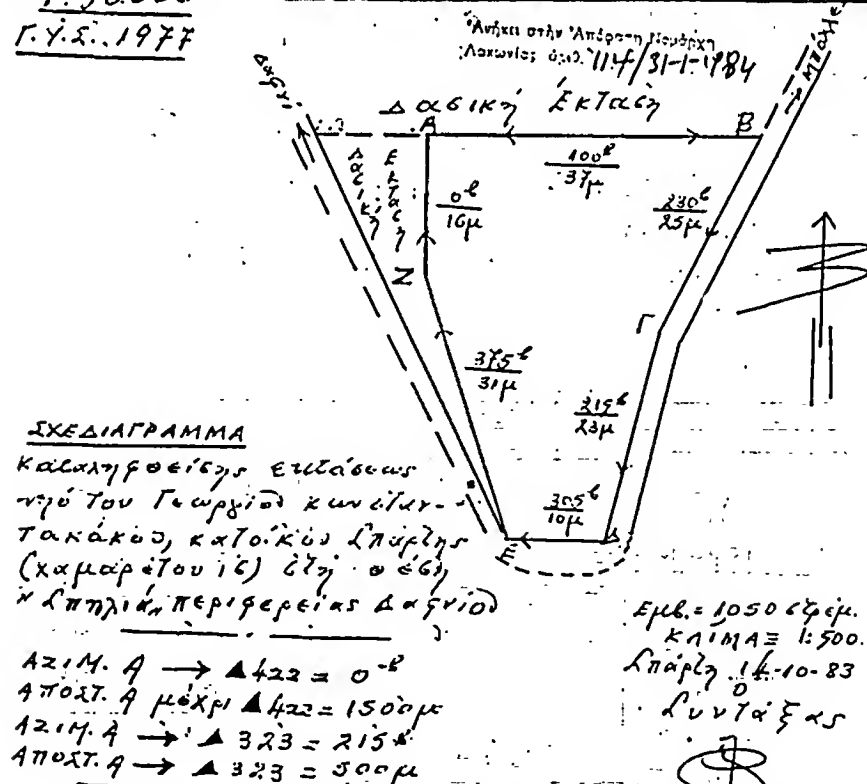 Γ.Υ.Σ. 1977
Ἀνήκει στήν Ἀπόφαση Νομάρχη
Λακωνίας ἀριθ. 114/31-1-1984
Δαφνί
Μπάλλε
Δασική Ἔκταση
A
B
100β
37μ
Δασική
Εκταση
0β
16μ
230β
25μ
Z
Γ
375β
31μ
215β
23μ
305β
10μ
E
Δ
ΣΧΕΔΙΑΓΡΑΜΜΑ
Καταληφθείσης εκτάσεως
υπό του Γεωργίου Κωνσταν-
τακάκου, κατοίκου Σπάρτης
(Χαμαρέτου 16) στη θέση
"Σπηλιά" περιφερείας Δαφνίου
ΑΖΙΜ. Α → ▲422 = 0-β
ΑΠΟΣΤ. Α μέχρι ▲422 = 1500μ
ΑΖΙΜ. Α → ▲ 323 = 215β
ΑΠΟΣΤ. Α → ▲ 323 = 500μ
Εμβ. = 1050 στρέμ.
ΚΛΙΜΑΞ 1:500.
Σπάρτη 14-10-83
Ο
Συντάξας